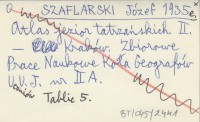 SZAFLARSKI Józef 1935 e.
Atlas jezior tatrzańskich II.
— Kraków. Zbiorowe
Prace Naukowe Koła Geografów
U.U.J. nr II A.
uczniów Tablic 5.
BT/045/2441